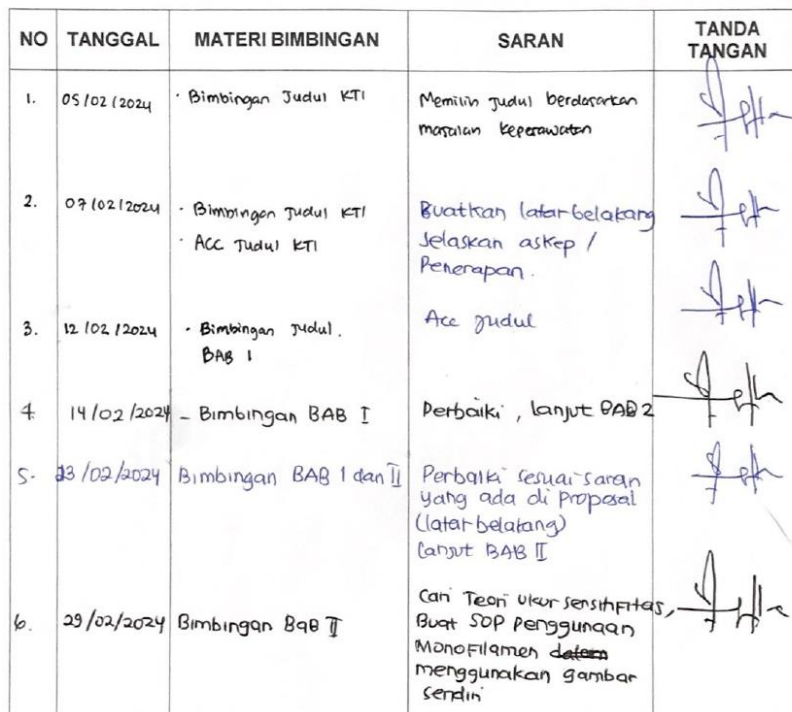 NO TANGGAL MATERI BIMBINGAN SARAN TANDA TANGAN
1. 05/02/2024 · Bimbingan Judul KTI Memilih Judul berdasarkan
masalah keperawatan
2. 07/02/2024 · Bimbingan Judul KTI Buatkan latar belakang
· ACC Judul KTI Jelaskan askep /
Penerapan.
3. 12/02/2024 · Bimbingan Judul. Acc Judul
BAB 1
4. 14/02/2024 - Bimbingan BAB I Perbaiki, lanjut BAB 2
5. 23/02/2024 Bimbingan BAB 1 dan II Perbaiki sesuai saran
yang ada di proposal
(latar belakang)
Lanjut BAB II
6. 29/02/2024 Bimbingan BaB II Cari Teori Ukur sensitifitas,
Buat SOP Penggunaan
Monofilamen dalam
menggunakan gambar
sendiri